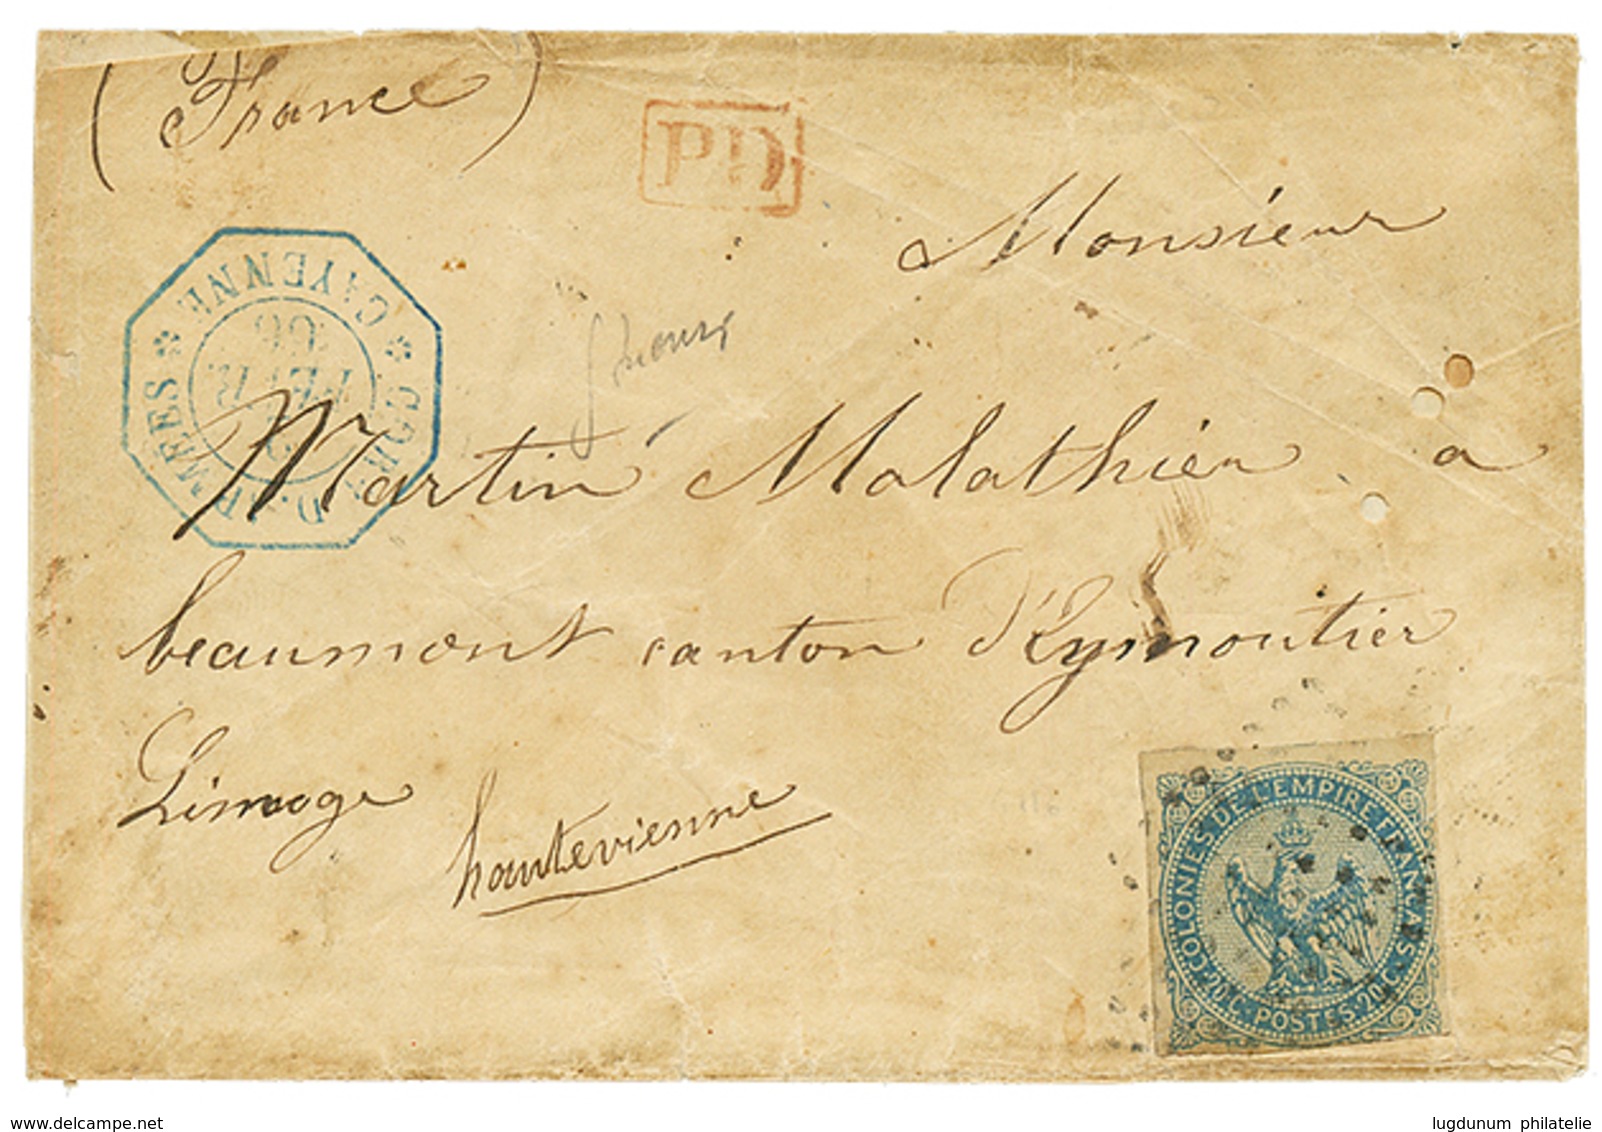 (France)
PD
Monsieur
Martin Malathier a
beaumont canton d'Eymoutier
Limoge
hautevienne
COR. D. ARMÉES
CAYENNE
FEVR.
66
COLONIES DE L'EMPIRE FRANÇAIS
20 C. POSTES 20 C.
delcampe.net
lugdunum philatelie